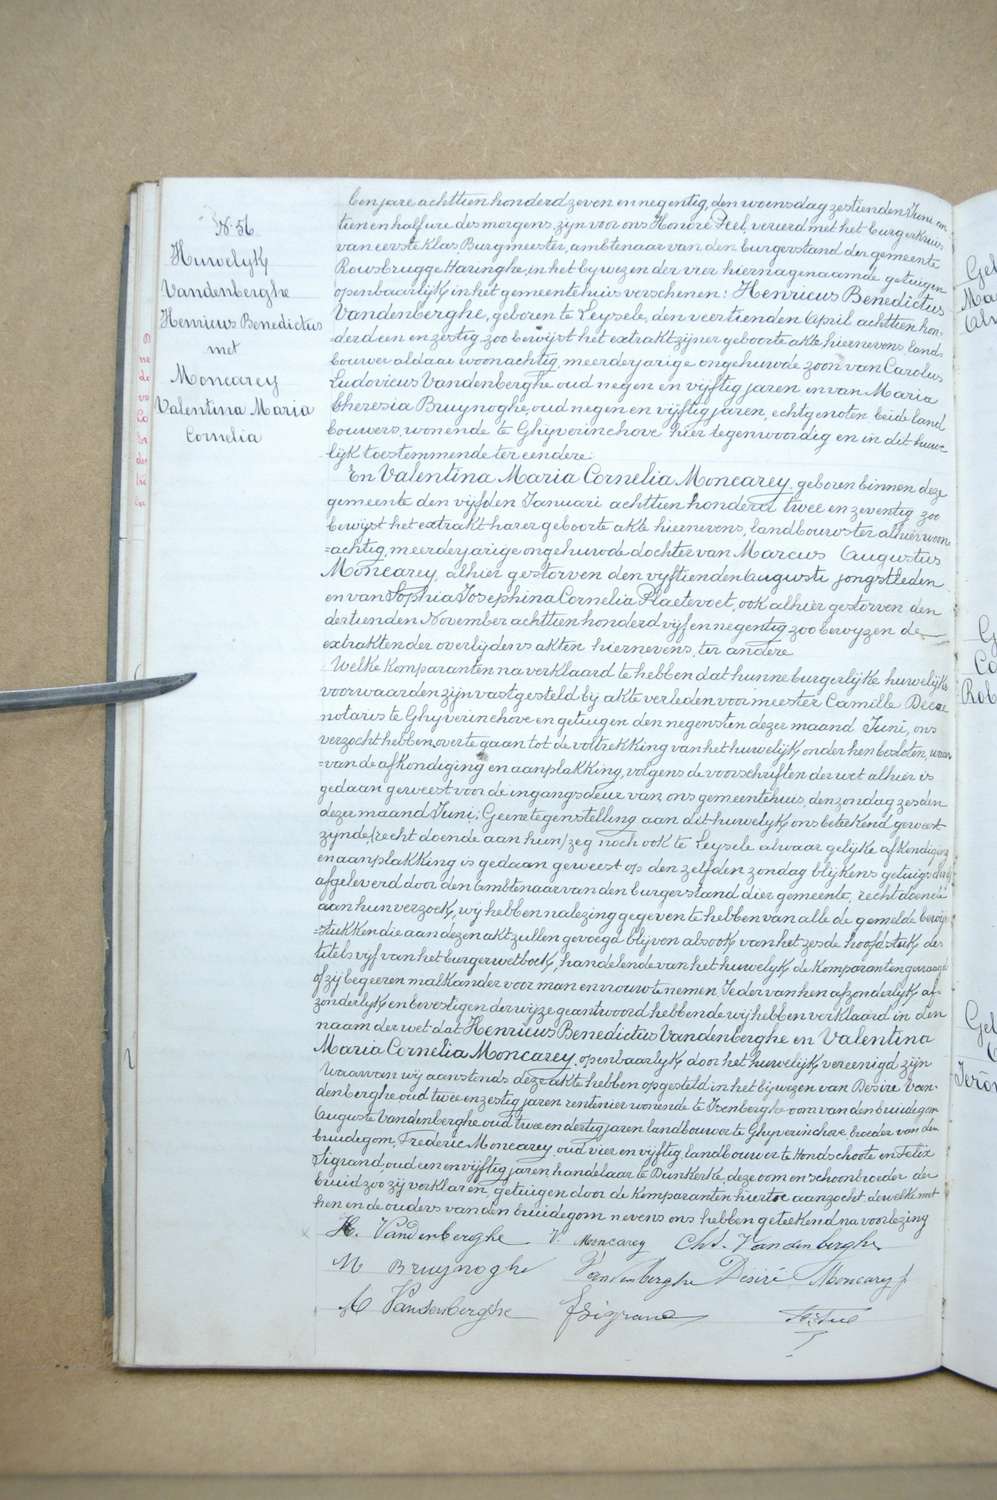 N. 56
Huwelyk
Vandenberghe
Henricus Benedictus
met
Moncarey
Valentina Maria
Cornelia
Den jare achttien honderd zeven en negentig, den woensdag zestienden Juni, om
tien en half ure des morgens, zijn voor ons Honoré Peel, vereerd met het burgerkruis
van eerste klas Burgmeester, ambtenaar van den burgerstand der gemeente
Rousbrugge Haringhe, in het bywezen der vier hiernagenaamde getuigen
openbaarlijk in het gemeentehuis verschenen: Henricus Benedictus
Vandenberghe, geboren te Leysele, den veertienden April achttien hon-
derd een en zestig, zoo bewijst het extrakt zijner geboorte akte hiernevens, land-
bouwer aldaar woonachtig, meerderjarige ongehuwde zoon van Carolus
Ludovicus Vandenberghe oud negen en vijftig jaren en van Maria
Theresia Bruynoghe, oud negen en vijftig jaren, echtgenoten beide land
bouwers, wonende te Ghyverinchove hier tegenwoordig en in dit huwe
lijk toestemmende ter eendere
En Valentina Maria Cornelia Moncarey, geboren binnen deze
gemeente den vijfden Januari achttien honderd twee en zeventig zoo
bewijst het extrakt harer geboorte akte hiernevens, landbouwster alhier woon
=achtig, meerderjarige ongehuwde dochter van Marcus Augustus
Moncarey, alhier gestorven den vijftienden Augusti jongstleden
en van Sophia Josephina Cornelia Plaetevoet, ook alhier gestorven den
dertienden November achttien honderd vijf en negentig zoo bewyzen de
extrakten der overlijdens akten hiernevens, ter andere
Welke komparanten na verklaard te hebben dat hunne burgerlijke huwelijks
voorwaarden zijn vastgesteld bij akte verleden voor meester Camille
notaris te Ghyverinchove en getuigen den negensten dezer maand Juni, ons
verzocht hebben, over te gaan tot de voltrekking van het huwelijk onder hen besloten, waar
=van de afkondiging en aanplakking, volgens de voorschriften der wet alhier is
gedaan geweest voor de ingangsdeur van ons gemeentehuis, den zondag zesden
dezer maand Juni; Geene tegenstelling aan dit huwelyk ons beteekend geweest
zynde, (recht doende aan hun) zeg noch ook te Leysele alwaar gelijke afkondiging
en aanplakking is gedaan geweest op den zelfden zondag blijkens getuigschrift
afgeleverd door den Ambtenaar van den burgerstand dier gemeente, recht doende
aan hun verzoek, wij hebben na lezing gegeven te hebben van alle de gemelde bewijs
=stukken die aan dezen akt zullen gevoegd blijven alsook van het zesde hoofdstuk des
titels vijf van het burger wetboek, handelende van het huwelyk de komparanten gevraagd
of zij begeeren malkander voor man en vrouw te nemen Ieder van hen afzonderlyk af-
zonderlyk en bevestigender wijze geantwoord hebbende wij hebben verklaard in den
naam der wet dat Henricus Benedictus Vandenberghe en Valentina
Maria Cornelia Moncarey, openbaarlyk door het huwelyk vereenigd zijn
Waarvan wij aanstonds deze akte hebben opgesteld in het bijwezen van Desire Van-
denberghe oud twee en zestig jaren rentenier wonende te Isenberghe oom van den bruidegom
Auguste Vandenberghe oud twee en dertig jaren landbouwer te Ghyverinchove, broeder van den
bruidegom, Frederic Moncarey, oud vier en vijftig landbouwer te Hondschoote en Felix
Sigrand, oud een en vijftig jaren, handelaar te Duinkerke, deze oom en schoonbroeder der
bruid zoo zij verklaren, getuigen door de komparanten hiertoe aanzocht, dewelke met
hen en de ouders van den bruidegom nevens ons hebben geteekend na voorlezing
H. Vandenberghe V. Moncarey Chs. Vandenberghe
M Bruynoghe Vandenberghe Désiré Moncarey f
A Vandenberghe f Sigrand